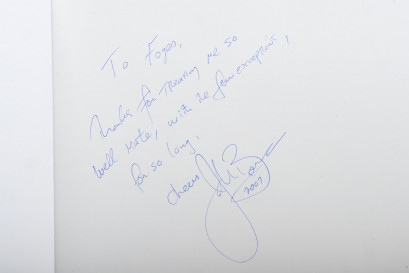 To Foges,
Thanks for Treating me so
well mate, with the few exceptions!
for so long,
cheers
2007